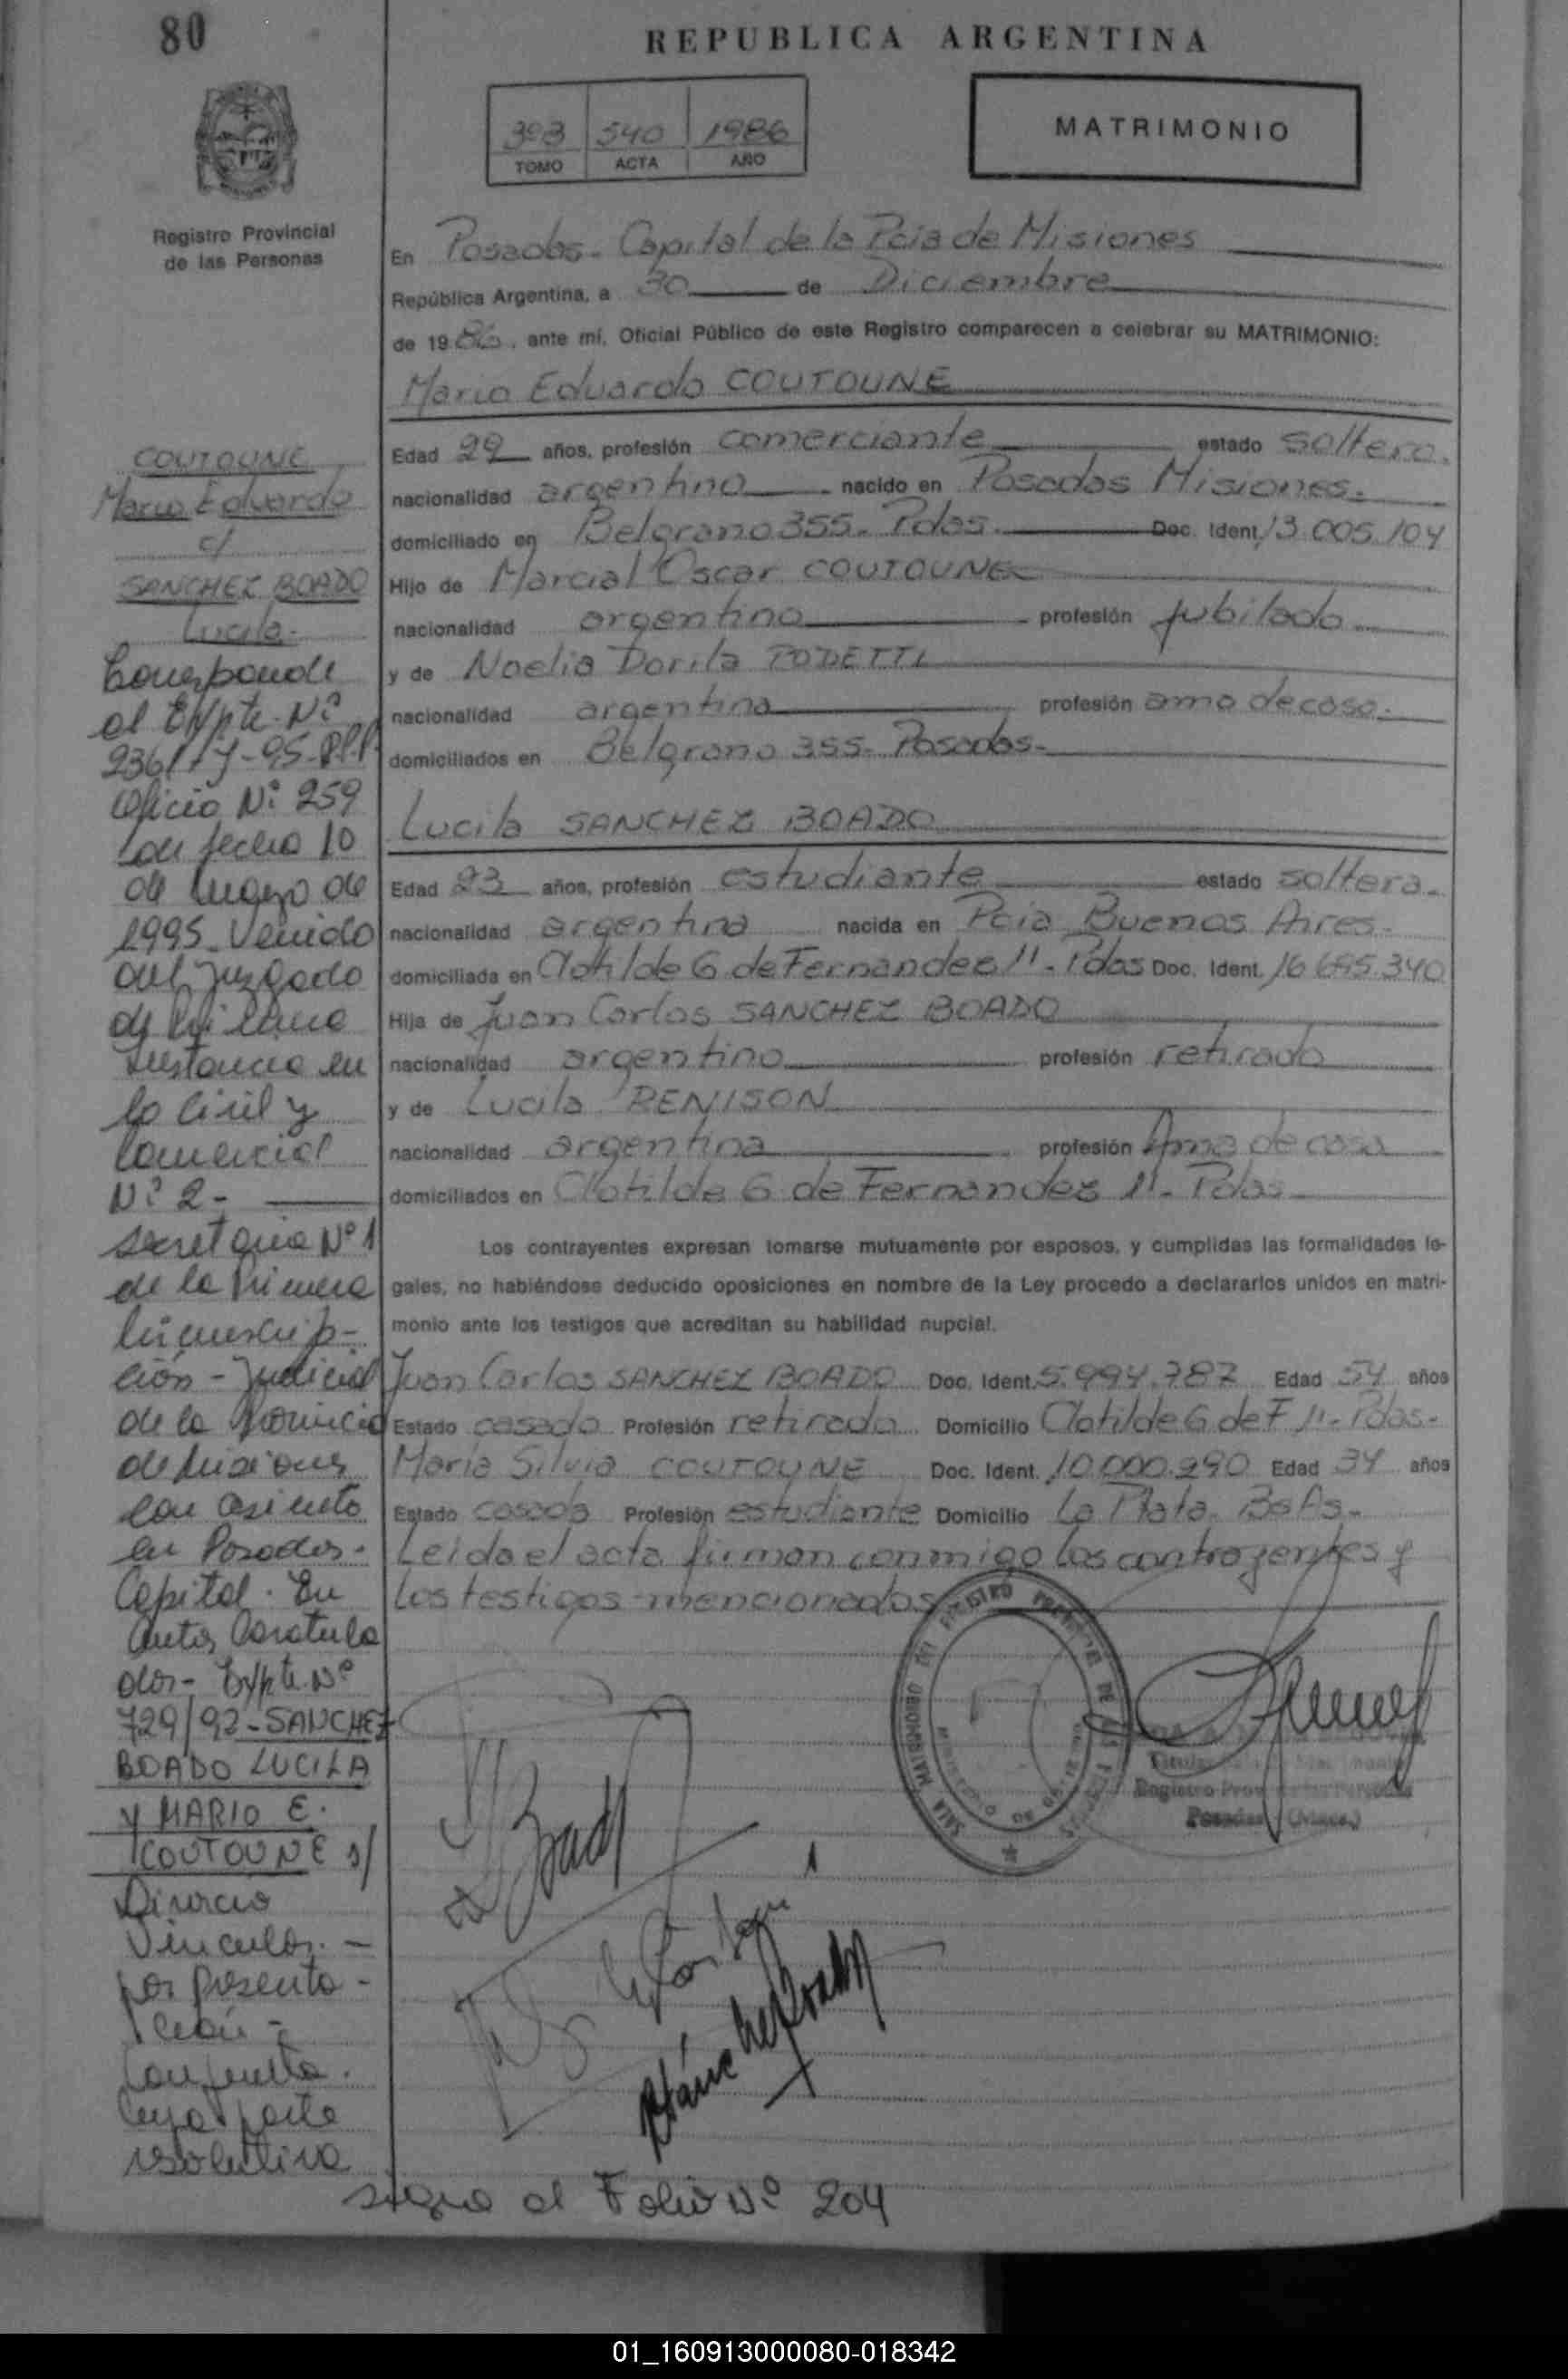 80
REPUBLICA ARGENTINA
393 540 1986
TOMO ACTA AÑO
MATRIMONIO
Registro Provincial
de las Personas
En Posadas - Capital de la Pcia de Misiones
República Argentina, a 30 de Diciembre
de 1986, ante mí, Oficial Público de este Registro comparecen a celebrar su MATRIMONIO:
Mario Eduardo COUTOUNE
Edad 29 años, profesión comerciante estado soltero.
nacionalidad argentino nacido en Posadas Misiones.
domiciliado en Belgrano 355 - Pdas. Doc. Ident. 13.005.104
Hijo de Marcial Oscar COUTOUNE
nacionalidad argentino profesión jubilado
y de Noelia Dorila PODETTI
nacionalidad argentina profesión ama de casa.
domiciliados en Belgrano 355 - Posadas -
Lucila SANCHEZ BOADO
Edad 23 años, profesión estudiante estado soltera.
nacionalidad argentina nacida en Pcia Buenos Aires.
domiciliada en Clotilde G de Fernandez 11 - Pdas Doc. Ident. 16 695.340
Hija de Juan Carlos SANCHEZ BOADO
nacionalidad argentino profesión retirado
y de Lucila RENISON
nacionalidad argentina profesión Ama de casa
domiciliados en Clotilde G de Fernandez 11 - Pdas
Los contrayentes expresan tomarse mutuamente por esposos, y cumplidas las formalidades le-
gales, no habiéndose deducido oposiciones en nombre de la Ley procedo a declararlos unidos en matri-
monio ante los testigos que acreditan su habilidad nupcial.
Juan Carlos SANCHEZ BOADO Doc. Ident. 5.994.787 Edad 54 años
Estado casado Profesión retirado Domicilio Clotilde G de F 11 - Pdas -
Maria Silvia COUTOUNE Doc. Ident. 10.000.290 Edad 34 años
Estado casada Profesión estudiante Domicilio La Plata - Bs As -
Leida el acta firman conmigo los contrayentes y
los testigos mencionados
COUTOUNE
Mario Eduardo
c/
SANCHEZ BOADO
Lucila -
Corresponde
al Expte. Nº
Oficio Nº 259
con fecha 10
de Marzo de
1995 - Venido
del Juzgado
de Primera
Instancia en
lo Civil y
Comercial
Nº 2 -
Secretaria Nº 1
de la Primera
Circunscrip-
ción - Judicial
de la Provincia
de Misiones
con asiento
en Posadas -
Capital. En
Autos Caratula
dos - Expte. Nº
729/92 - SANCHEZ
BOADO LUCILA
Y MARIO E.
COUTOUNE s/
Divorcio
Vincular. -
por Presenta -
ción -
conjunta.
Cuya parte
resolutiva
Registro Provincial de las Personas
Posadas (Mnes.)
sigue al Folio Nº 204
01_160913000080-018342